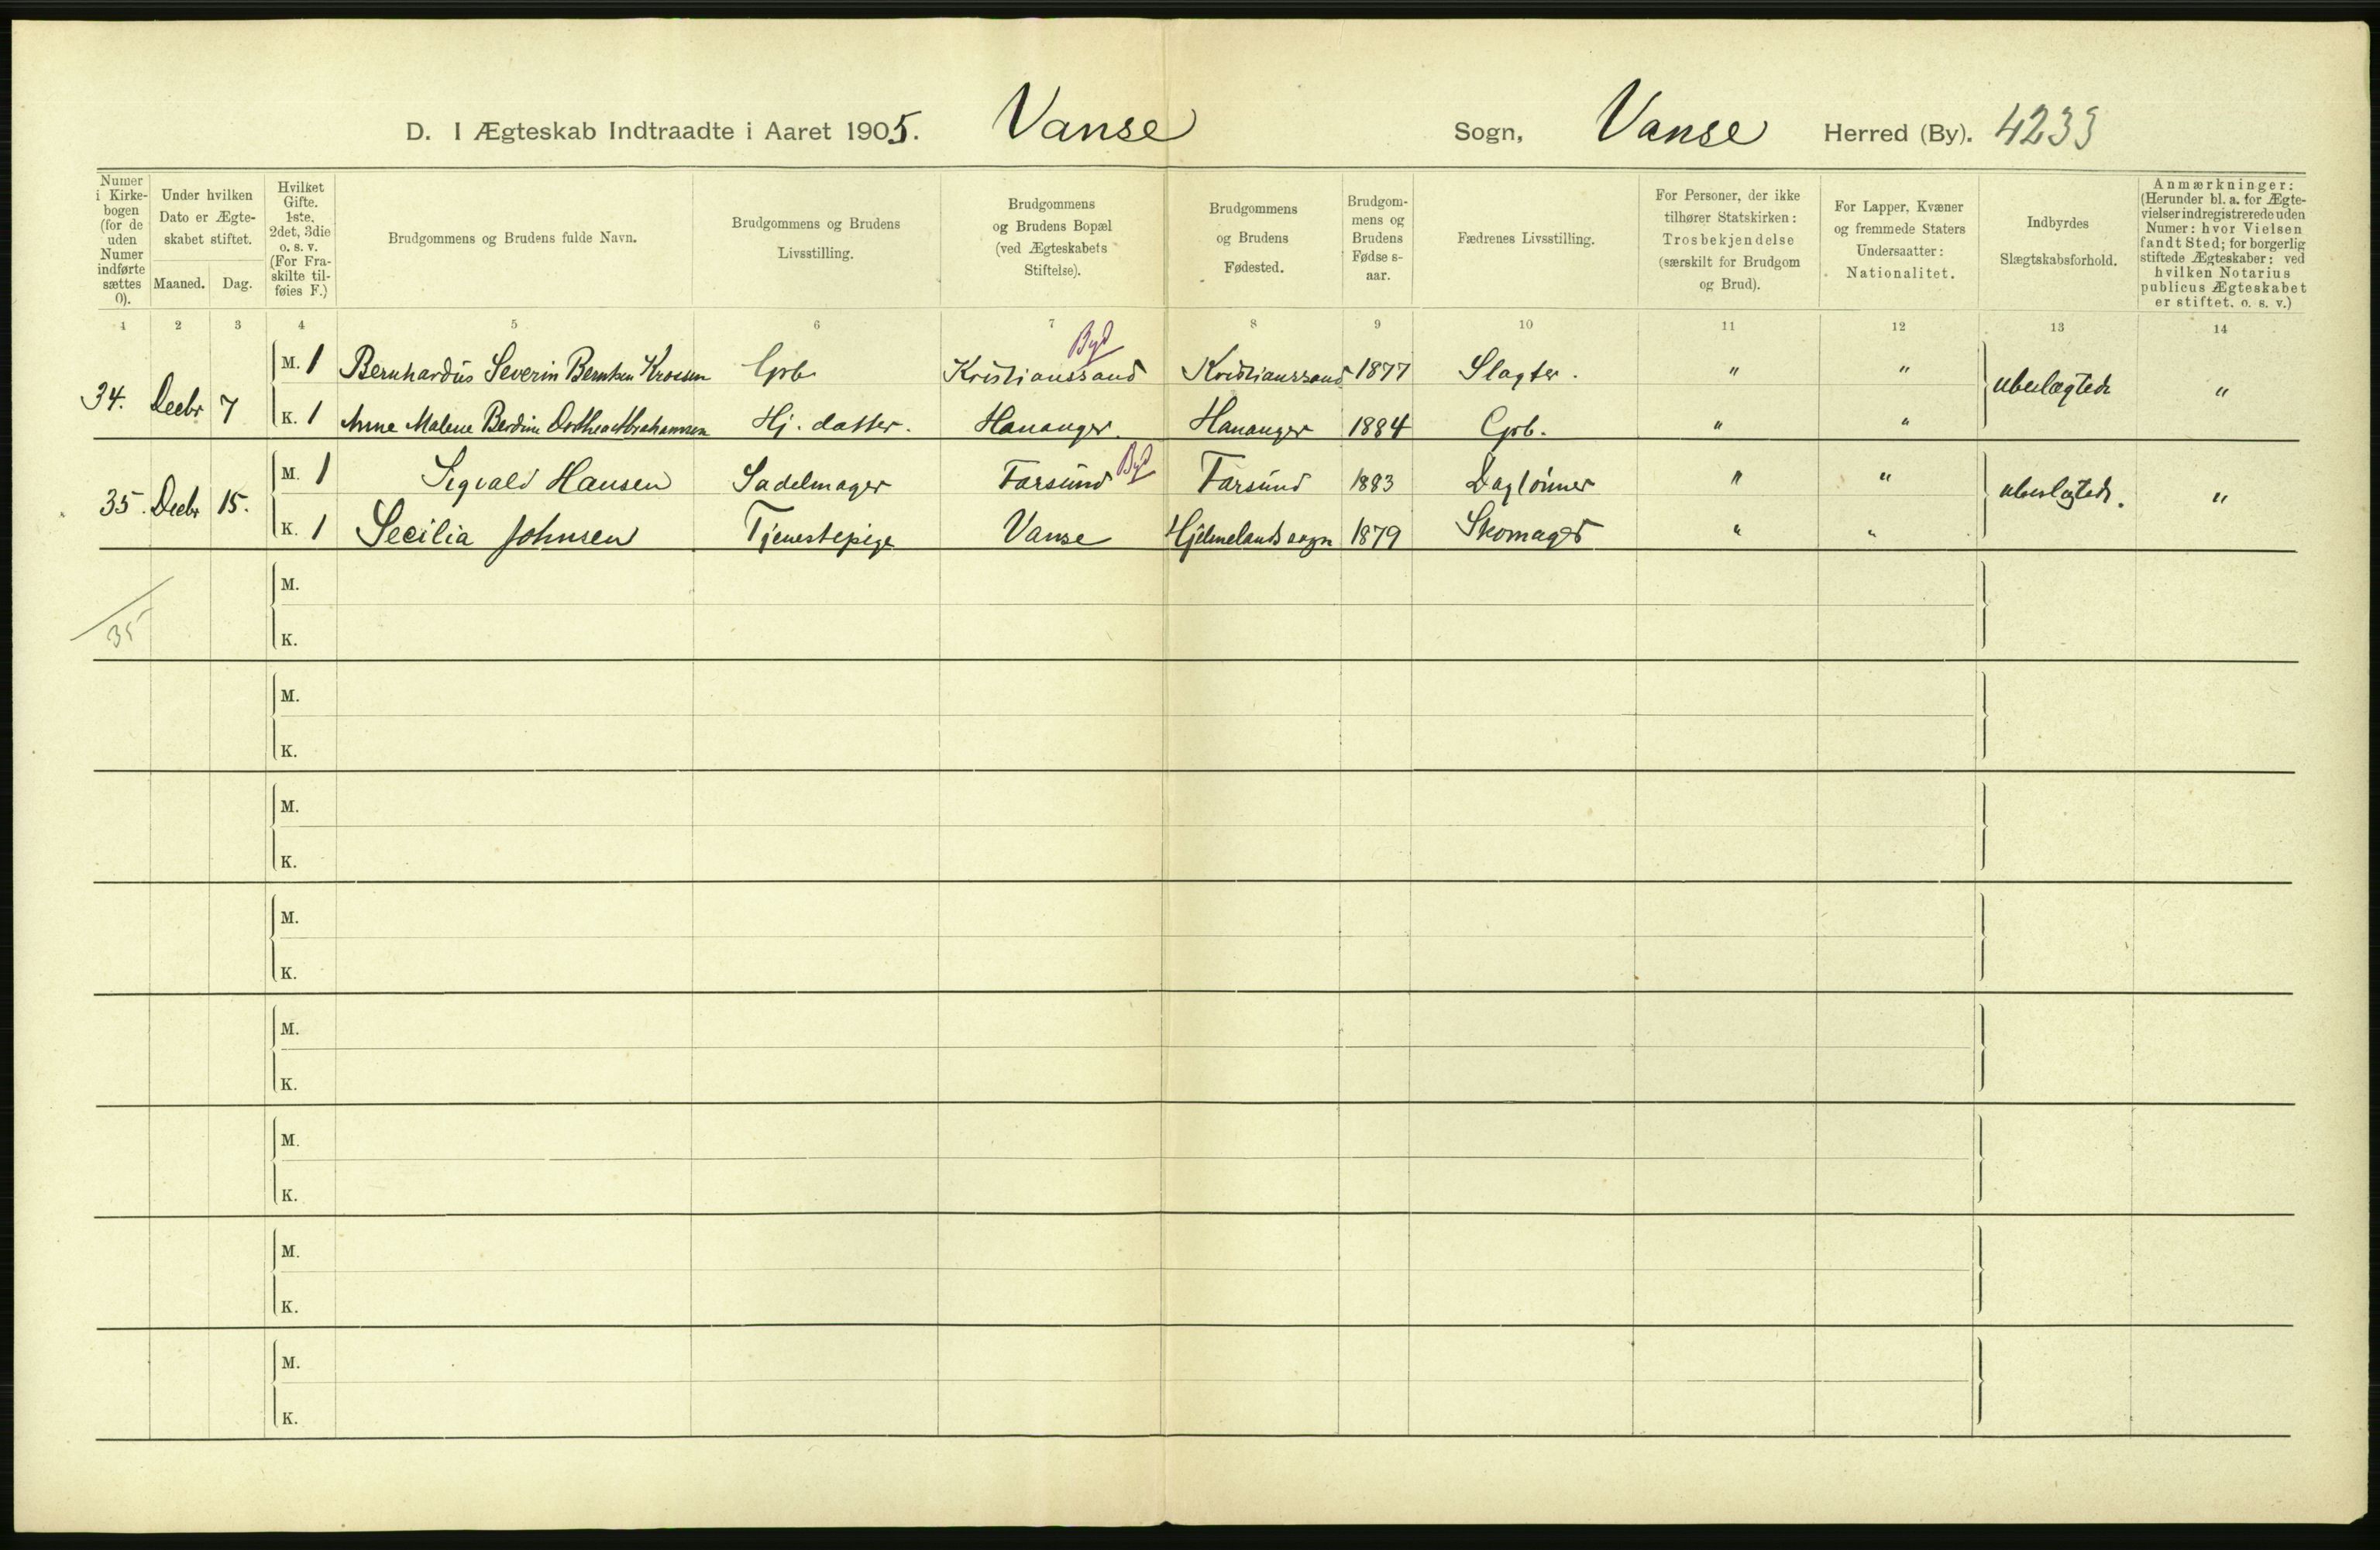 D. I Ægteskab Indtraadte i Aaret 1905. Vanse Sogn, Vanse Herred (By). 4233
Numer i Kirkebogen (for de uden Numer indførte sættes 0).
Under hvilken Dato er Ægteskabet stiftet.
Maaned. Dag.
Hvilket Gifte. 1ste, 2det, 3die o. s. v. (For Fraskilte tilføies F.)
Brudgommens og Brudens fulde Navn.
Brudgommens og Brudens Livsstilling.
Brudgommens og Brudens Bopæl (ved Ægteskabets Stiftelse).
Brudgommens og Brudens Fødested.
Brudgommens og Brudens Fødselsaar.
Fædrenes Livsstilling.
For Personer, der ikke tilhører Statskirken: Trosbekjendelse (særskilt for Brudgom og Brud).
For Lapper, Kvæner og fremmede Staters Undersaatter: Nationalitet.
Indbyrdes Slægtskabsforhold.
Anmærkninger: (Herunder bl. a. for Ægtevielser indregistrerede uden Numer: hvor Vielsen fandt Sted; for borgerlig stiftede Ægteskaber: ved hvilken Notarius publicus Ægteskabet er stiftet. o. s. v.)
1 2 3 4 5 6 7 8 9 10 11 12 13 14
Byd
34. Decbr 7 M. 1 Bernhardus Severin Kristianssand Kristianssand 1877 Slagter. " " ubeslægtede "
K. 1 Anne Malene Berdine Dorthea Abrahamsen Hj. datter. Hananger. Hananger 1884 Grb. " "
Byd
35. Decbr 15. M. 1 Sigvald Hansen Sadelmager Farsund Farsund 1883 Daglønner " " ubeslægtede. "
K. 1 Secilia Johnsen Tjenestepige Vanse Hjelmelands sogn 1879 Skomager " "
M.
35
K.
M.
K.
M.
K.
M.
K.
M.
K.
M.
K.
M.
K.
M.
K.